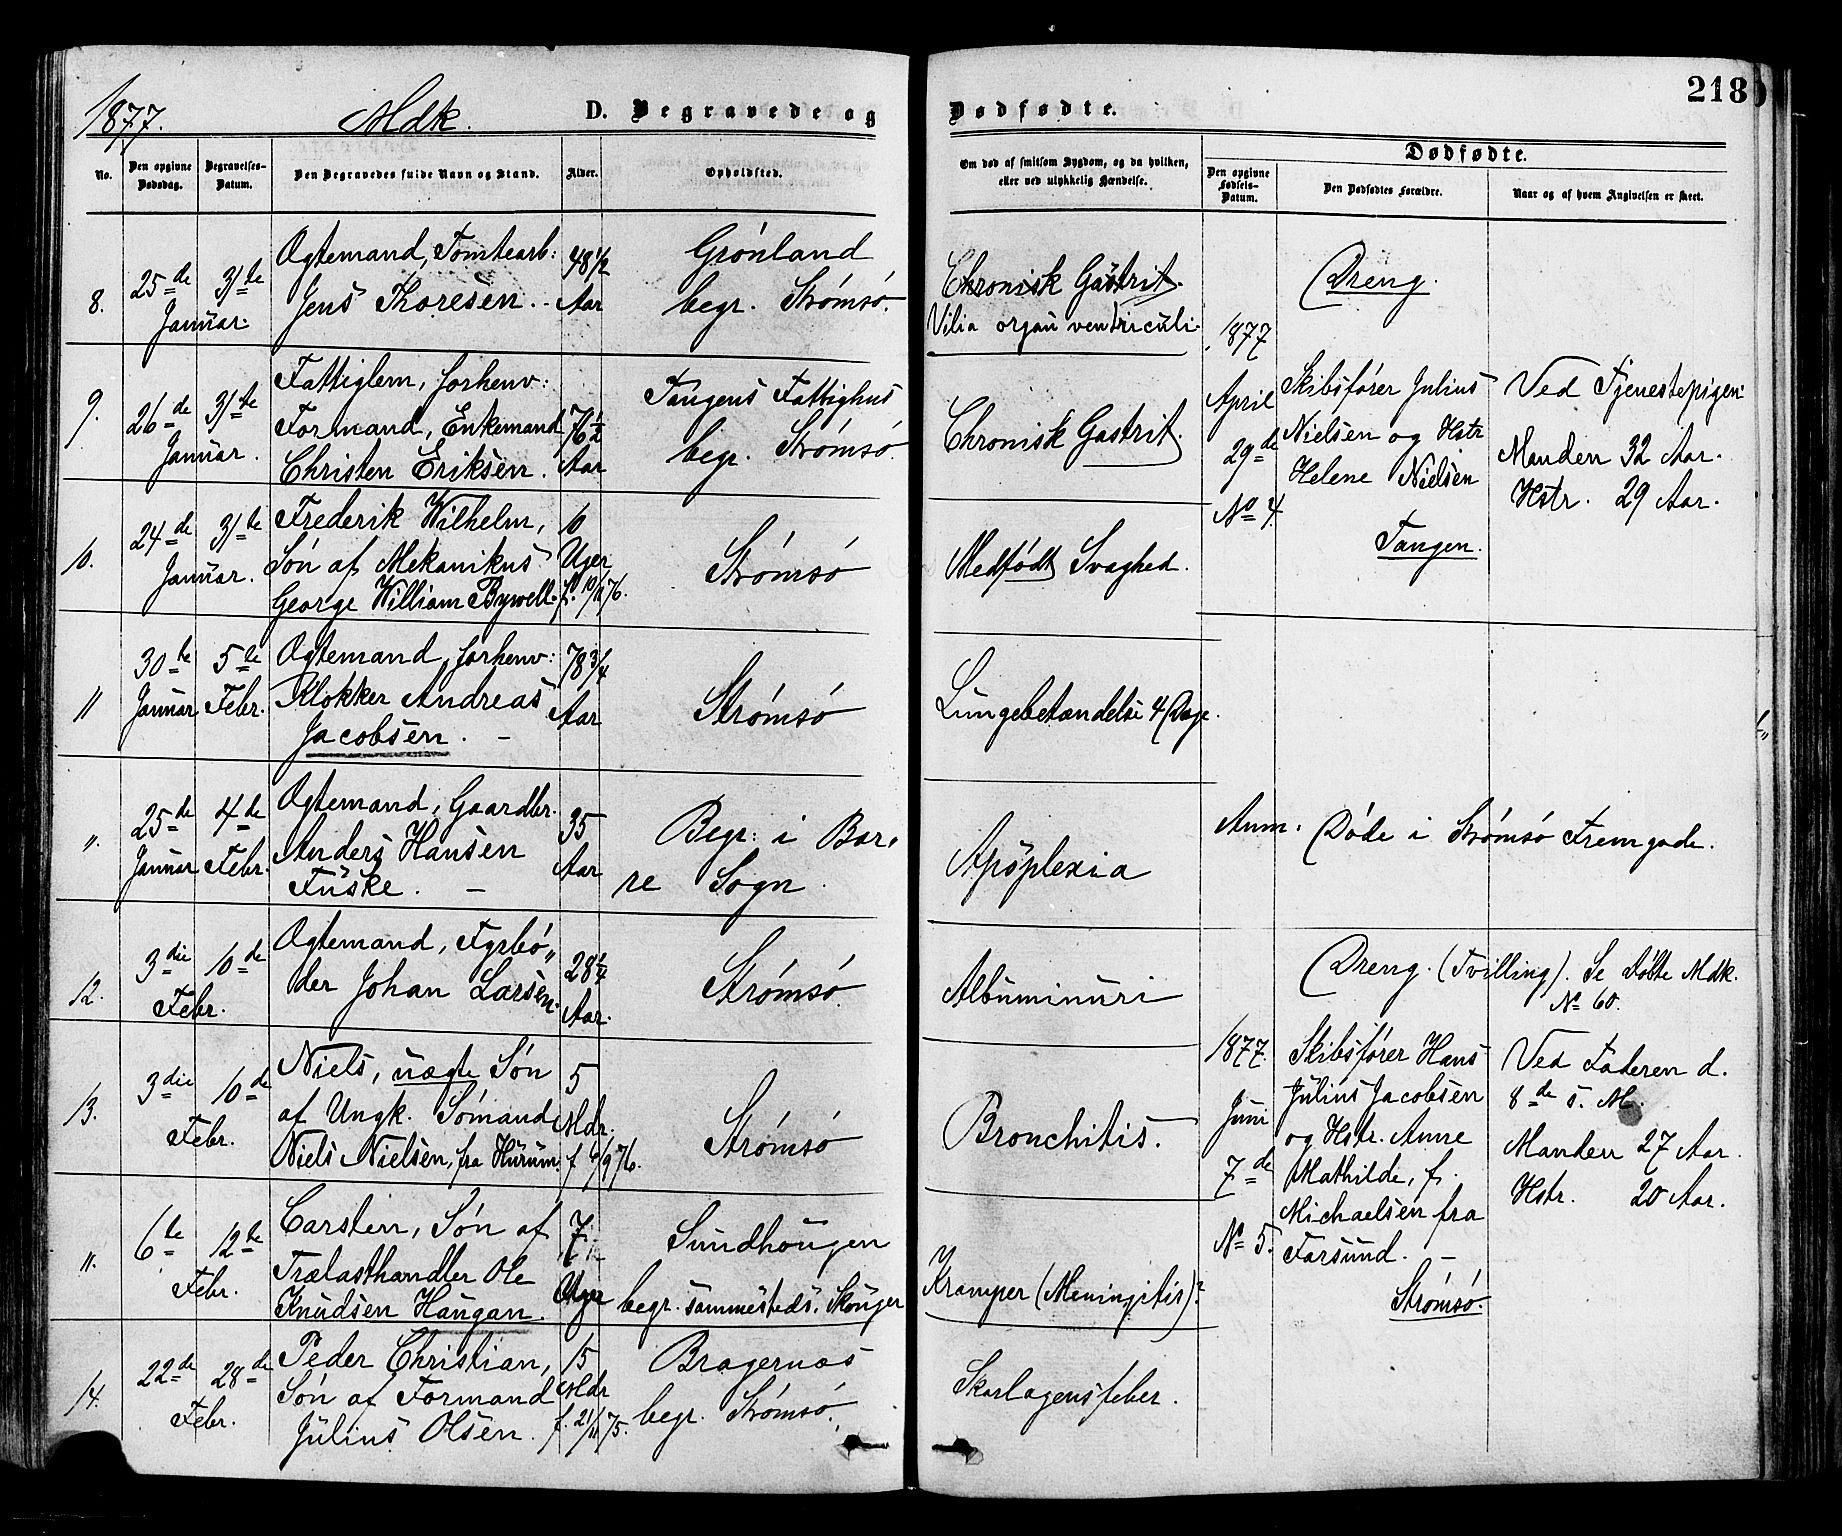 1877. Mdk. D. Begravede og Dødfødte. 218
No.
Den opgivne Dødsdag.
Begravelses-Datum.
Den Begravedes fulde Navn og Stand.
Alder.
Opholdsted.
Om død af smitsom Sygdom, og da hvilken,
eller ved ulykkelig Hændelse.
Dødfødte.
Den opgivne Fødsels-Datum.
Den Dødfødtes Forældre.
Naar og af hvem Angivelsen er skeet.
8.
25de 31te
Januar.
Ogtemand, Tomtearb:
Jens Thoresen.
48 1/2
Aar
Grönland
begr. Strömsö.
Chronisk Gastrit.
Vilia organ ventriculi.
9.
26de 31te
Januar.
Fattiglem, forhenv:
Formand, Enkemand
Christen Eriksen.
76 1/2
Aar
Tangens Fattighus
begr. Strömsö
Chronisk Gastrit.
10.
24de 31te
Januar.
Frederik Wilhelm,
Sön af Mekanikus
George William Bywell.
10
Uger
f. 10/11 76.
Strömsö
Medfödt Svaghed.
11
30te 5te
Januar Febr.
Ogtemand, forhenv:
Klokker Andreas
Jacobsen. -
78 3/4
Aar
Strömsö
Lungebetændelse 4 Dage.
"
25de 4de
Januar Febr.
Ogtemand, Gaardbr.
Anders Hansen
Fuske. -
35
Aar
Begr: i Bor,
re Sogn.
Apoplexia
12.
3die 10de
Febr.
Ogtemand, Fyrbö,,
der Johan Larsen.
28 1/4
Aar.
Strömsö.
Albuminuri
13.
3die 10de
Febr.
Niels, uægte Sön
af Ungk. Sömand
Niels Nielsen, fra Hurum
5
Mdr.
f 6/9 76.
Strömsö
Bronchitis.
".
6te 12te
Febr.
Carsten, Sön af
Trælasthandler Ole
Knudsen Haugan.
7
Uger
Sundhougen
begr. sammesteds. Skouger
Kramper (Meningitis)?
14.
22de 28de
Febr.
Peder Christian,
Sön af Formand
Julius Olsen.
15
Mdr
f. 21/11 75.
Bragernæs
begr. Strömsö.
Skarlagensfeber.
Dreng.
1877
April
29de
No 4.
Skibsförer Julius
Nielsen og Hstr
Helene Nielsen
Tangen.
Ved Tjenestepigen
Manden 32 Aar.
Hstr. 29 Aar.
Anm. Döde i Strömsö Fremgade.
Dreng. (Tvilling). Se Döbte Mdk.
No 60.
1877.
Juni
7de
No 5.
Skibsförer Hans
Julius Jacobsen
og Hstr. Anne
Mathilde, f.
Michaelsen fra
Farsund. -
Strömsö.
Ved Faderen d.
8de s. M.
Manden 27 Aar.
Hstr. 20 Aar.